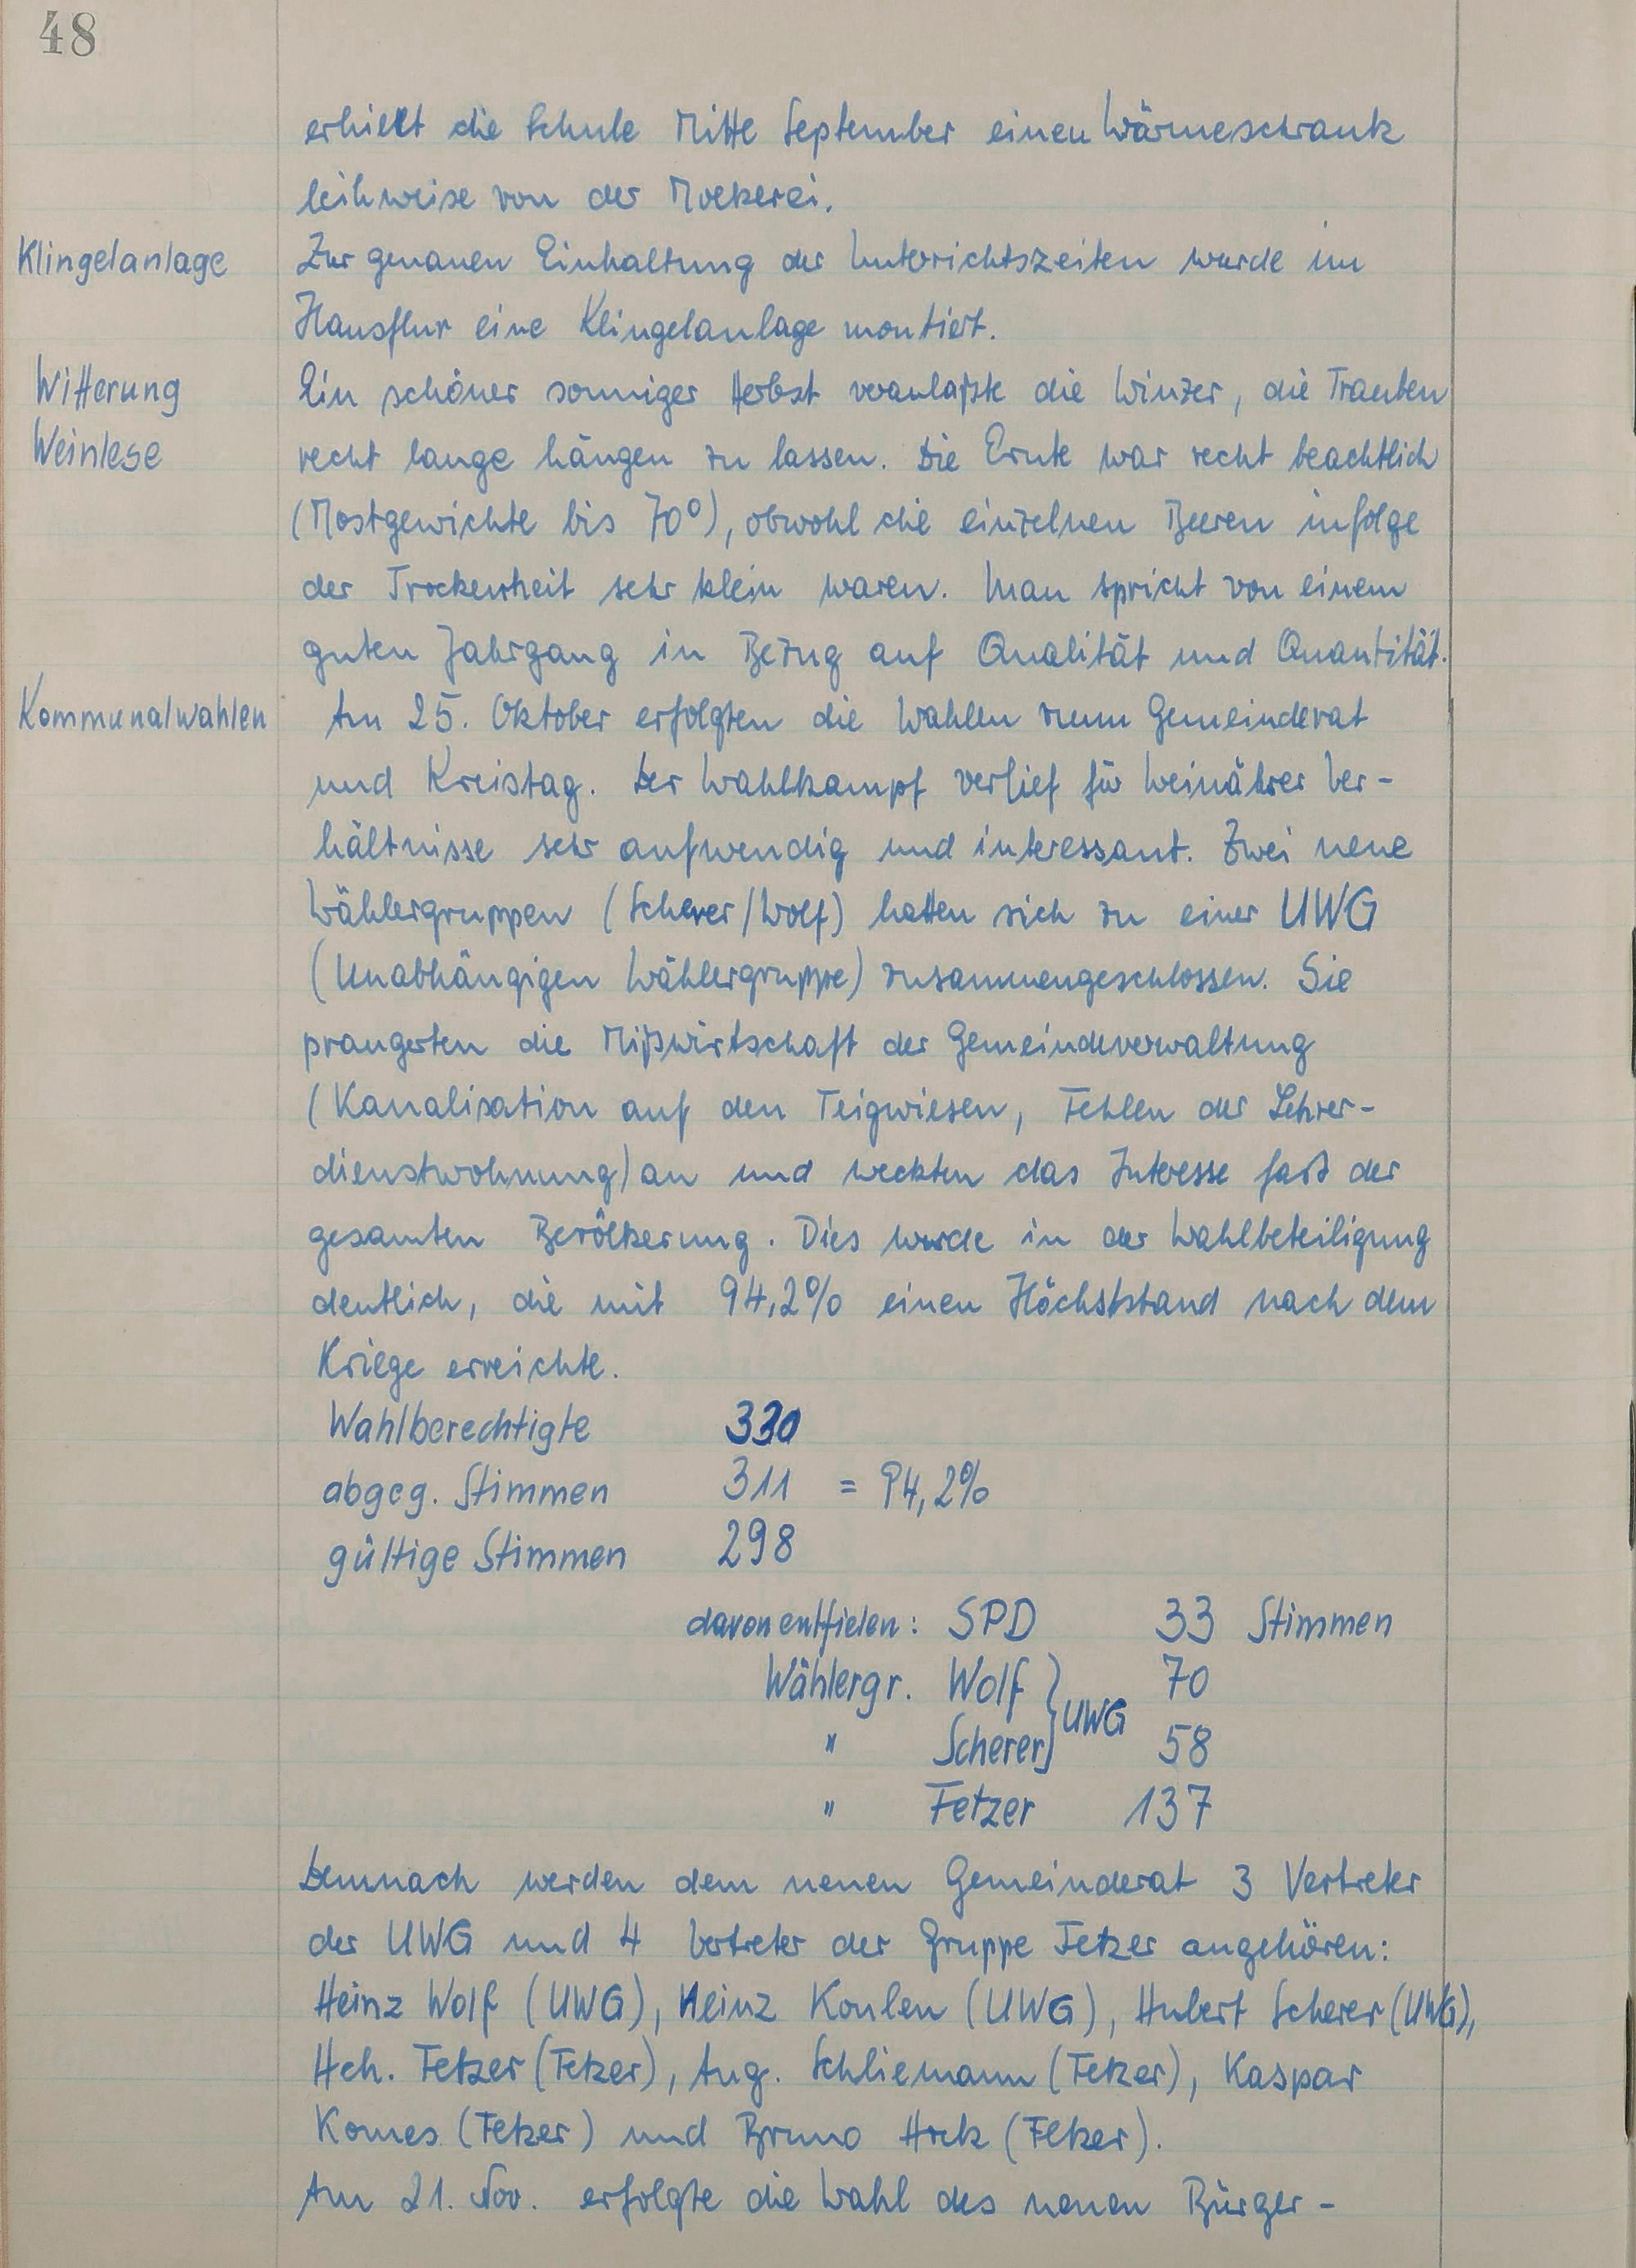 48
erhielt die Schule Mitte September einen Wärmeschrank
leihweise von der Molkerei.
Klingelanlage Zur genauen Einhaltung der Unterrichtszeiten wurde im
Hausflur eine Klingelanlage montiert.
Witterung Ein schöner sonniger Herbst veranlaßte die Winzer, die Trauben
Weinlese recht lange hängen zu lassen. Die Ernte war recht beachtlich
(Mostgewichte bis 70°), obwohl die einzelnen Beeren infolge
der Trockenheit sehr klein waren. Man spricht von einem
guten Jahrgang in Bezug auf Qualität und Quantität.
Kommunalwahlen Am 25. Oktober erfolgten die Wahlen zum Gemeinderat
und Kreistag. Der Wahlkampf verlief für Weinährer Ver-
hältnisse sehr aufwendig und interessant. Zwei neue
Wählergruppen (Scherer/Wolf) hatten sich zu einer UWG
(Unabhängigen Wählergruppe) zusammengeschlossen. Sie
prangerten die Mißwirtschaft der Gemeindeverwaltung
(Kanalisation auf den Teigwiesen, Fehlen der Lehrer-
dienstwohnung) an und weckten das Interesse fast der
gesamten Bevölkerung. Dies wurde in der Wahlbeteiligung
deutlich, die mit 94,2% einen Höchststand nach dem
Kriege erreichte.
Wahlberechtigte 330
abgeg. Stimmen 311 = 94,2%
gültige Stimmen 298
davon entfielen: SPD 33 Stimmen
Wählergr. Wolf } 70
UWG
" Scherer } 58
" Fetzer 137
Demnach werden dem neuen Gemeinderat 3 Vertreter
der UWG und 4 Vertreter der Gruppe Fetzer angehören:
Heinz Wolf (UWG), Heinz Koulen (UWG), Hubert Scherer (UWG),
Hch. Fetzer (Fetzer), Aug. Schliemann (Fetzer), Kaspar
Komes (Fetzer) und Bruno Hock (Fetzer).
Am 21. Nov. erfolgte die Wahl des neuen Bürger-